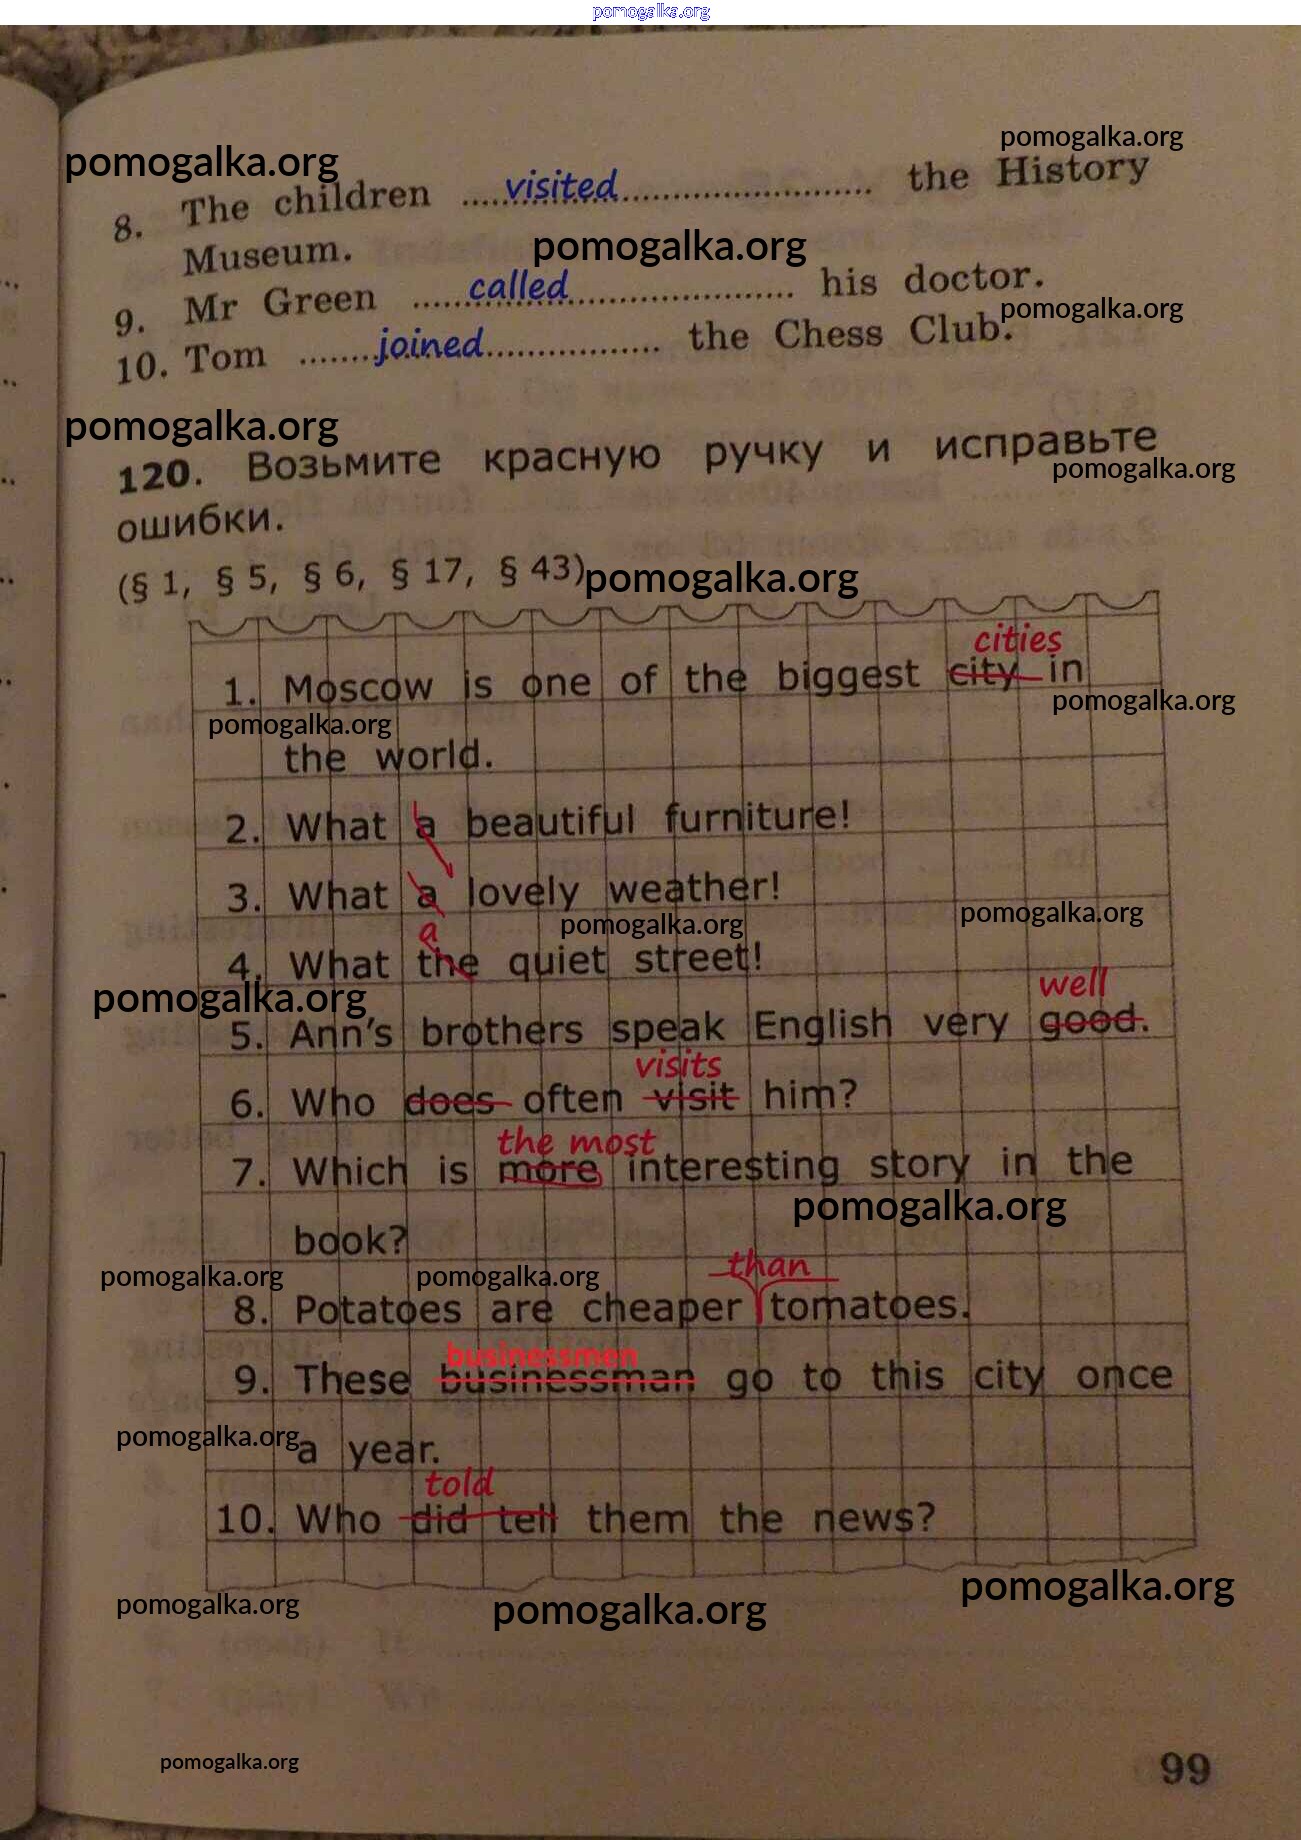 pomogalka.org
pomogalka.org
pomogalka.org
8. The children ....visited........................ the History
Museum.
pomogalka.org
9. Mr Green .....called...................... his doctor.
pomogalka.org
10. Tom ........joined................. the Chess Club.
pomogalka.org
120. Возьмите красную ручку и исправьте
pomogalka.org
ошибки.
(§ 1, § 5, § 6, § 17, § 43)
pomogalka.org
cities
1. Moscow is one of the biggest city in
pomogalka.org
pomogalka.org
the world.
2. What a beautiful furniture!
3. What a lovely weather!
pomogalka.org
pomogalka.org
a
4. What the quiet street!
pomogalka.org
well
5. Ann's brothers speak English very good.
visits
6. Who does often visit him?
the most
7. Which is more interesting story in the
pomogalka.org
book?
pomogalka.org
pomogalka.org
than
8. Potatoes are cheaper tomatoes.
businessmen
9. These businessman go to this city once
pomogalka.org
a year.
told
10. Who did tell them the news?
pomogalka.org
pomogalka.org
pomogalka.org
pomogalka.org
99